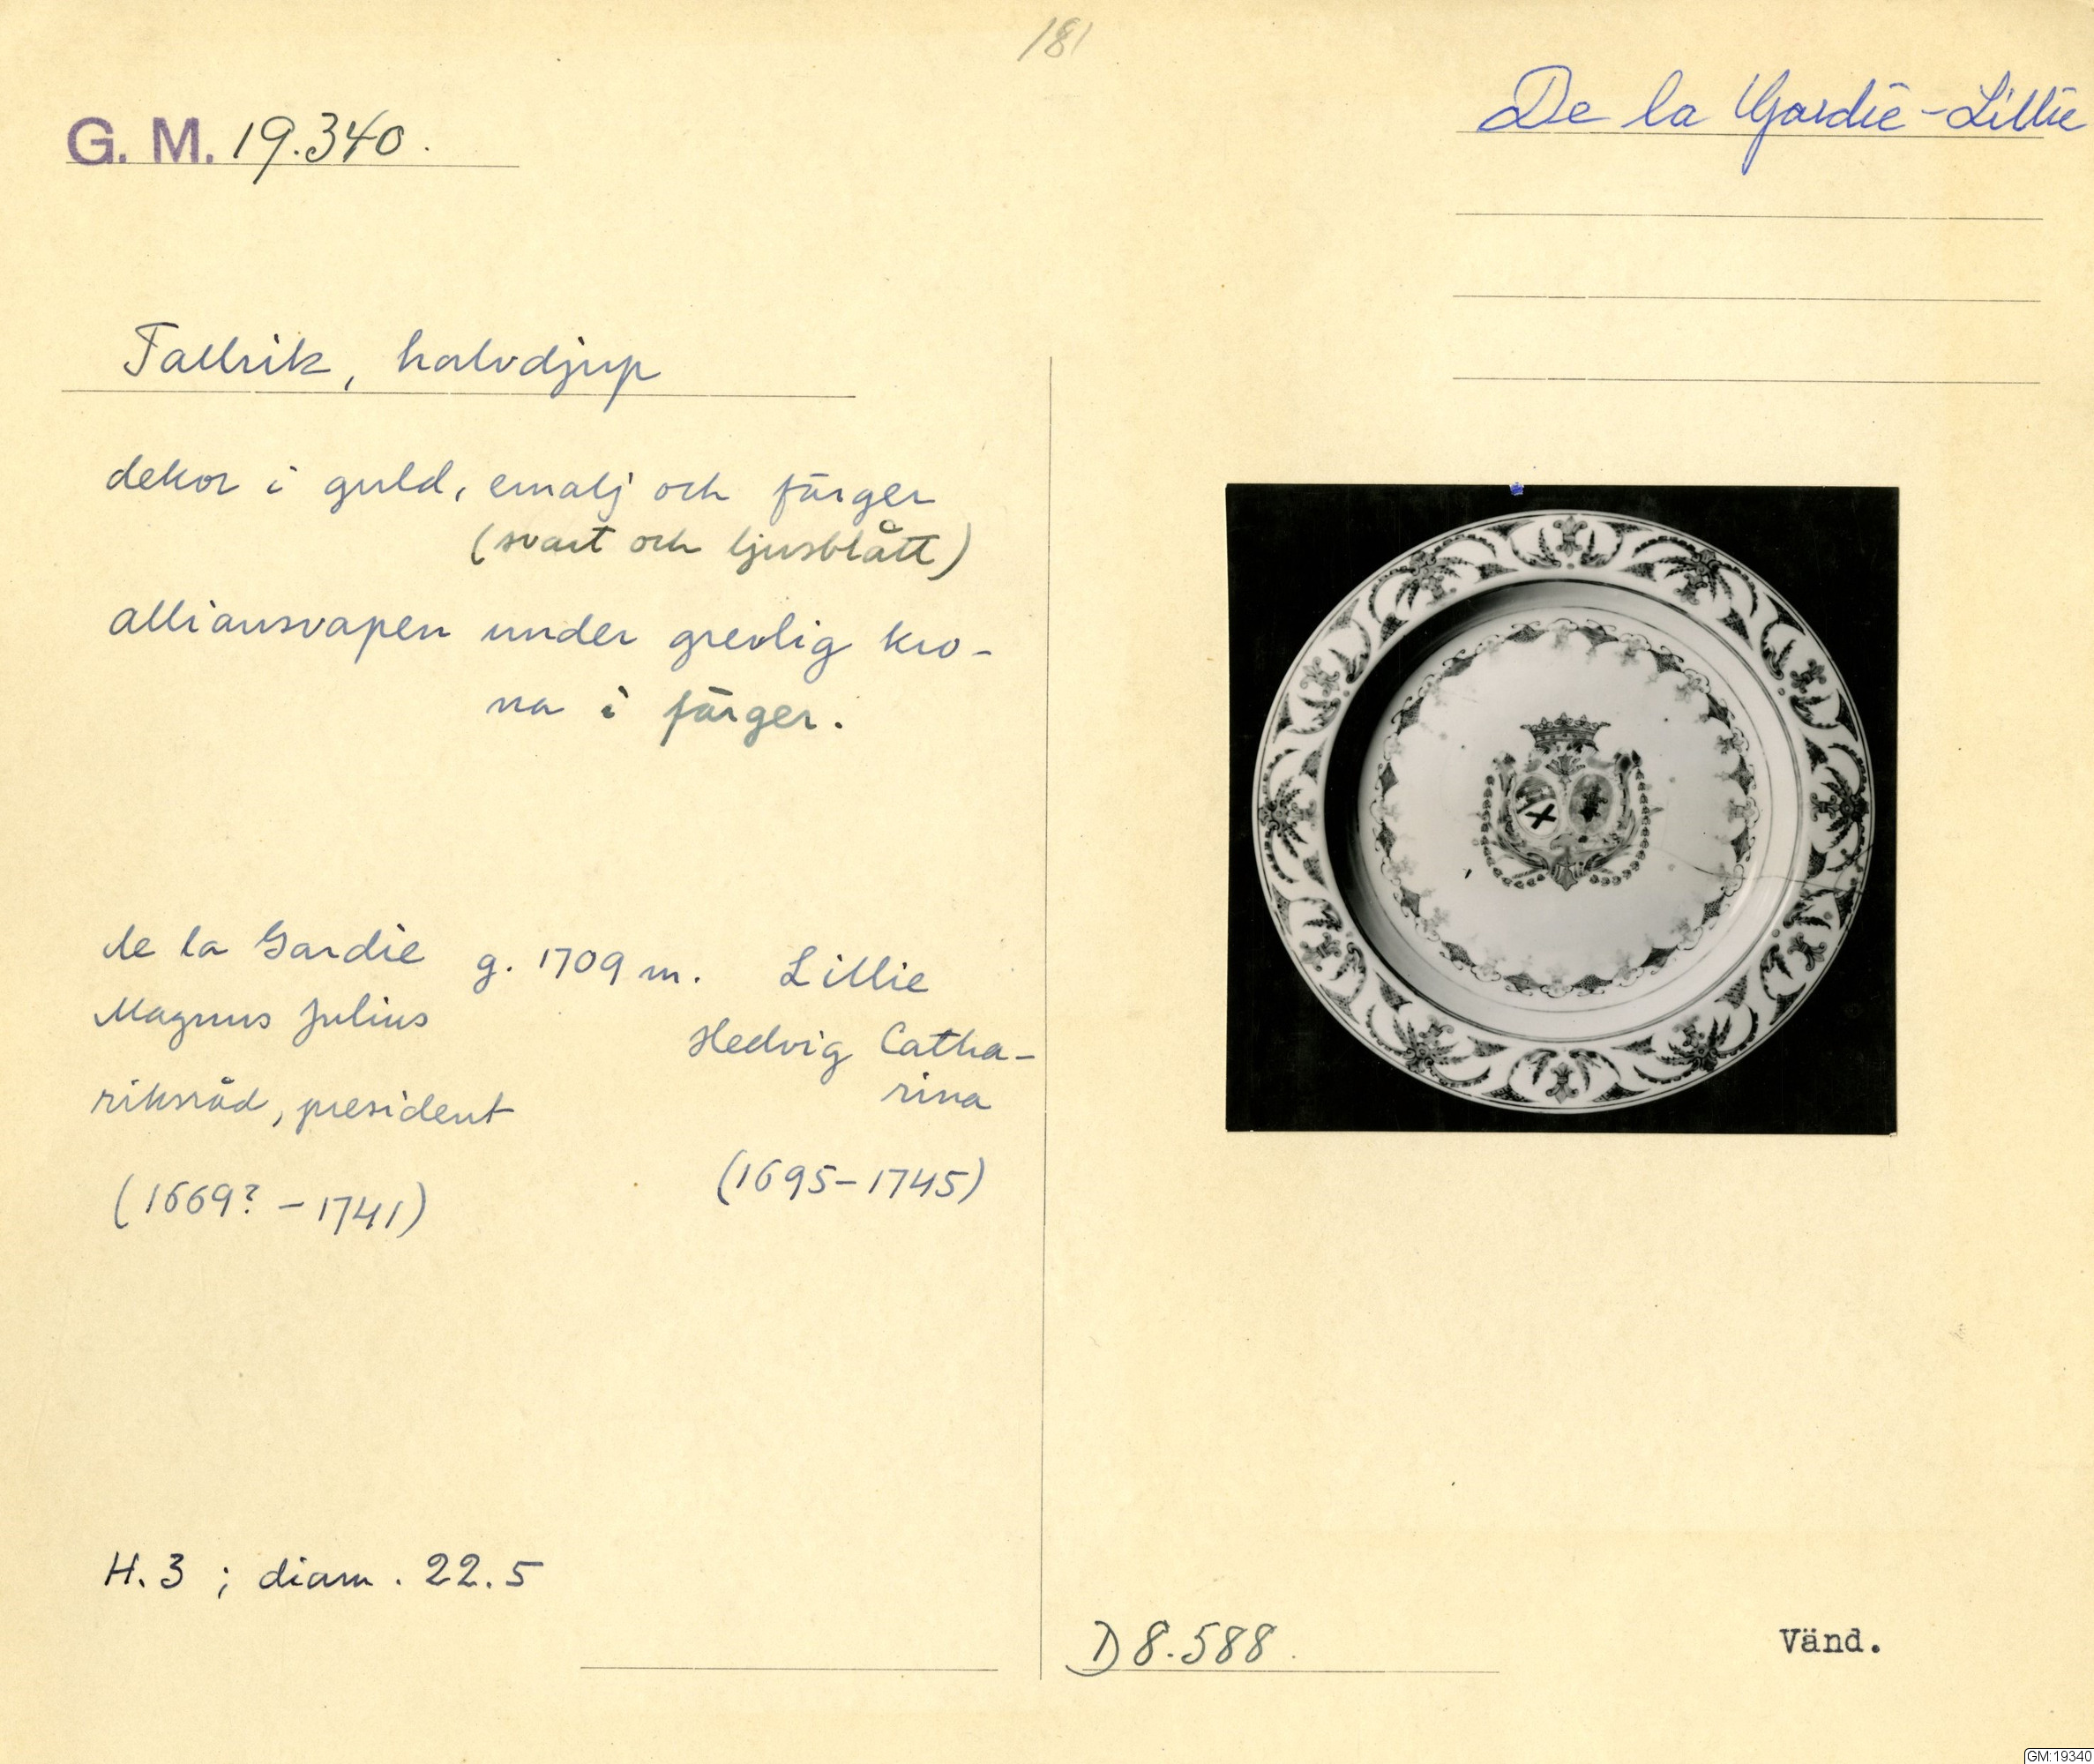 181
G. M. 19.340.
De la Gardie-Lillie
Tallrik, halvdjup
dekor i guld, emalj och färger
(svart och ljusblått)
alliansvapen under grevlig kro-
na i färger.
de la Gardie g. 1709 m. Lillie
Magnus Julius
Hedvig Catha-
rina
riksråd, president
(1669? - 1741)
(1695-1745)
H. 3 ; diam. 22.5
D 8.588.
Vänd.
GM:19340